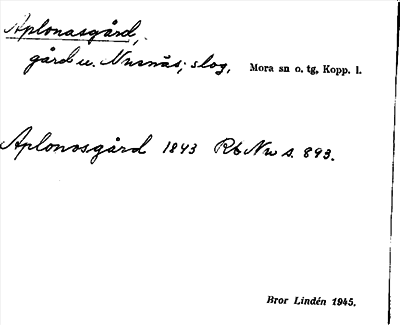 Aplonasgård,
gård u. Nusnäs; slog, Mora sn o. tg, Kopp. l.
Aplonosgård 1843 Rb Nu s. 893.
Bror Lindén 1945.